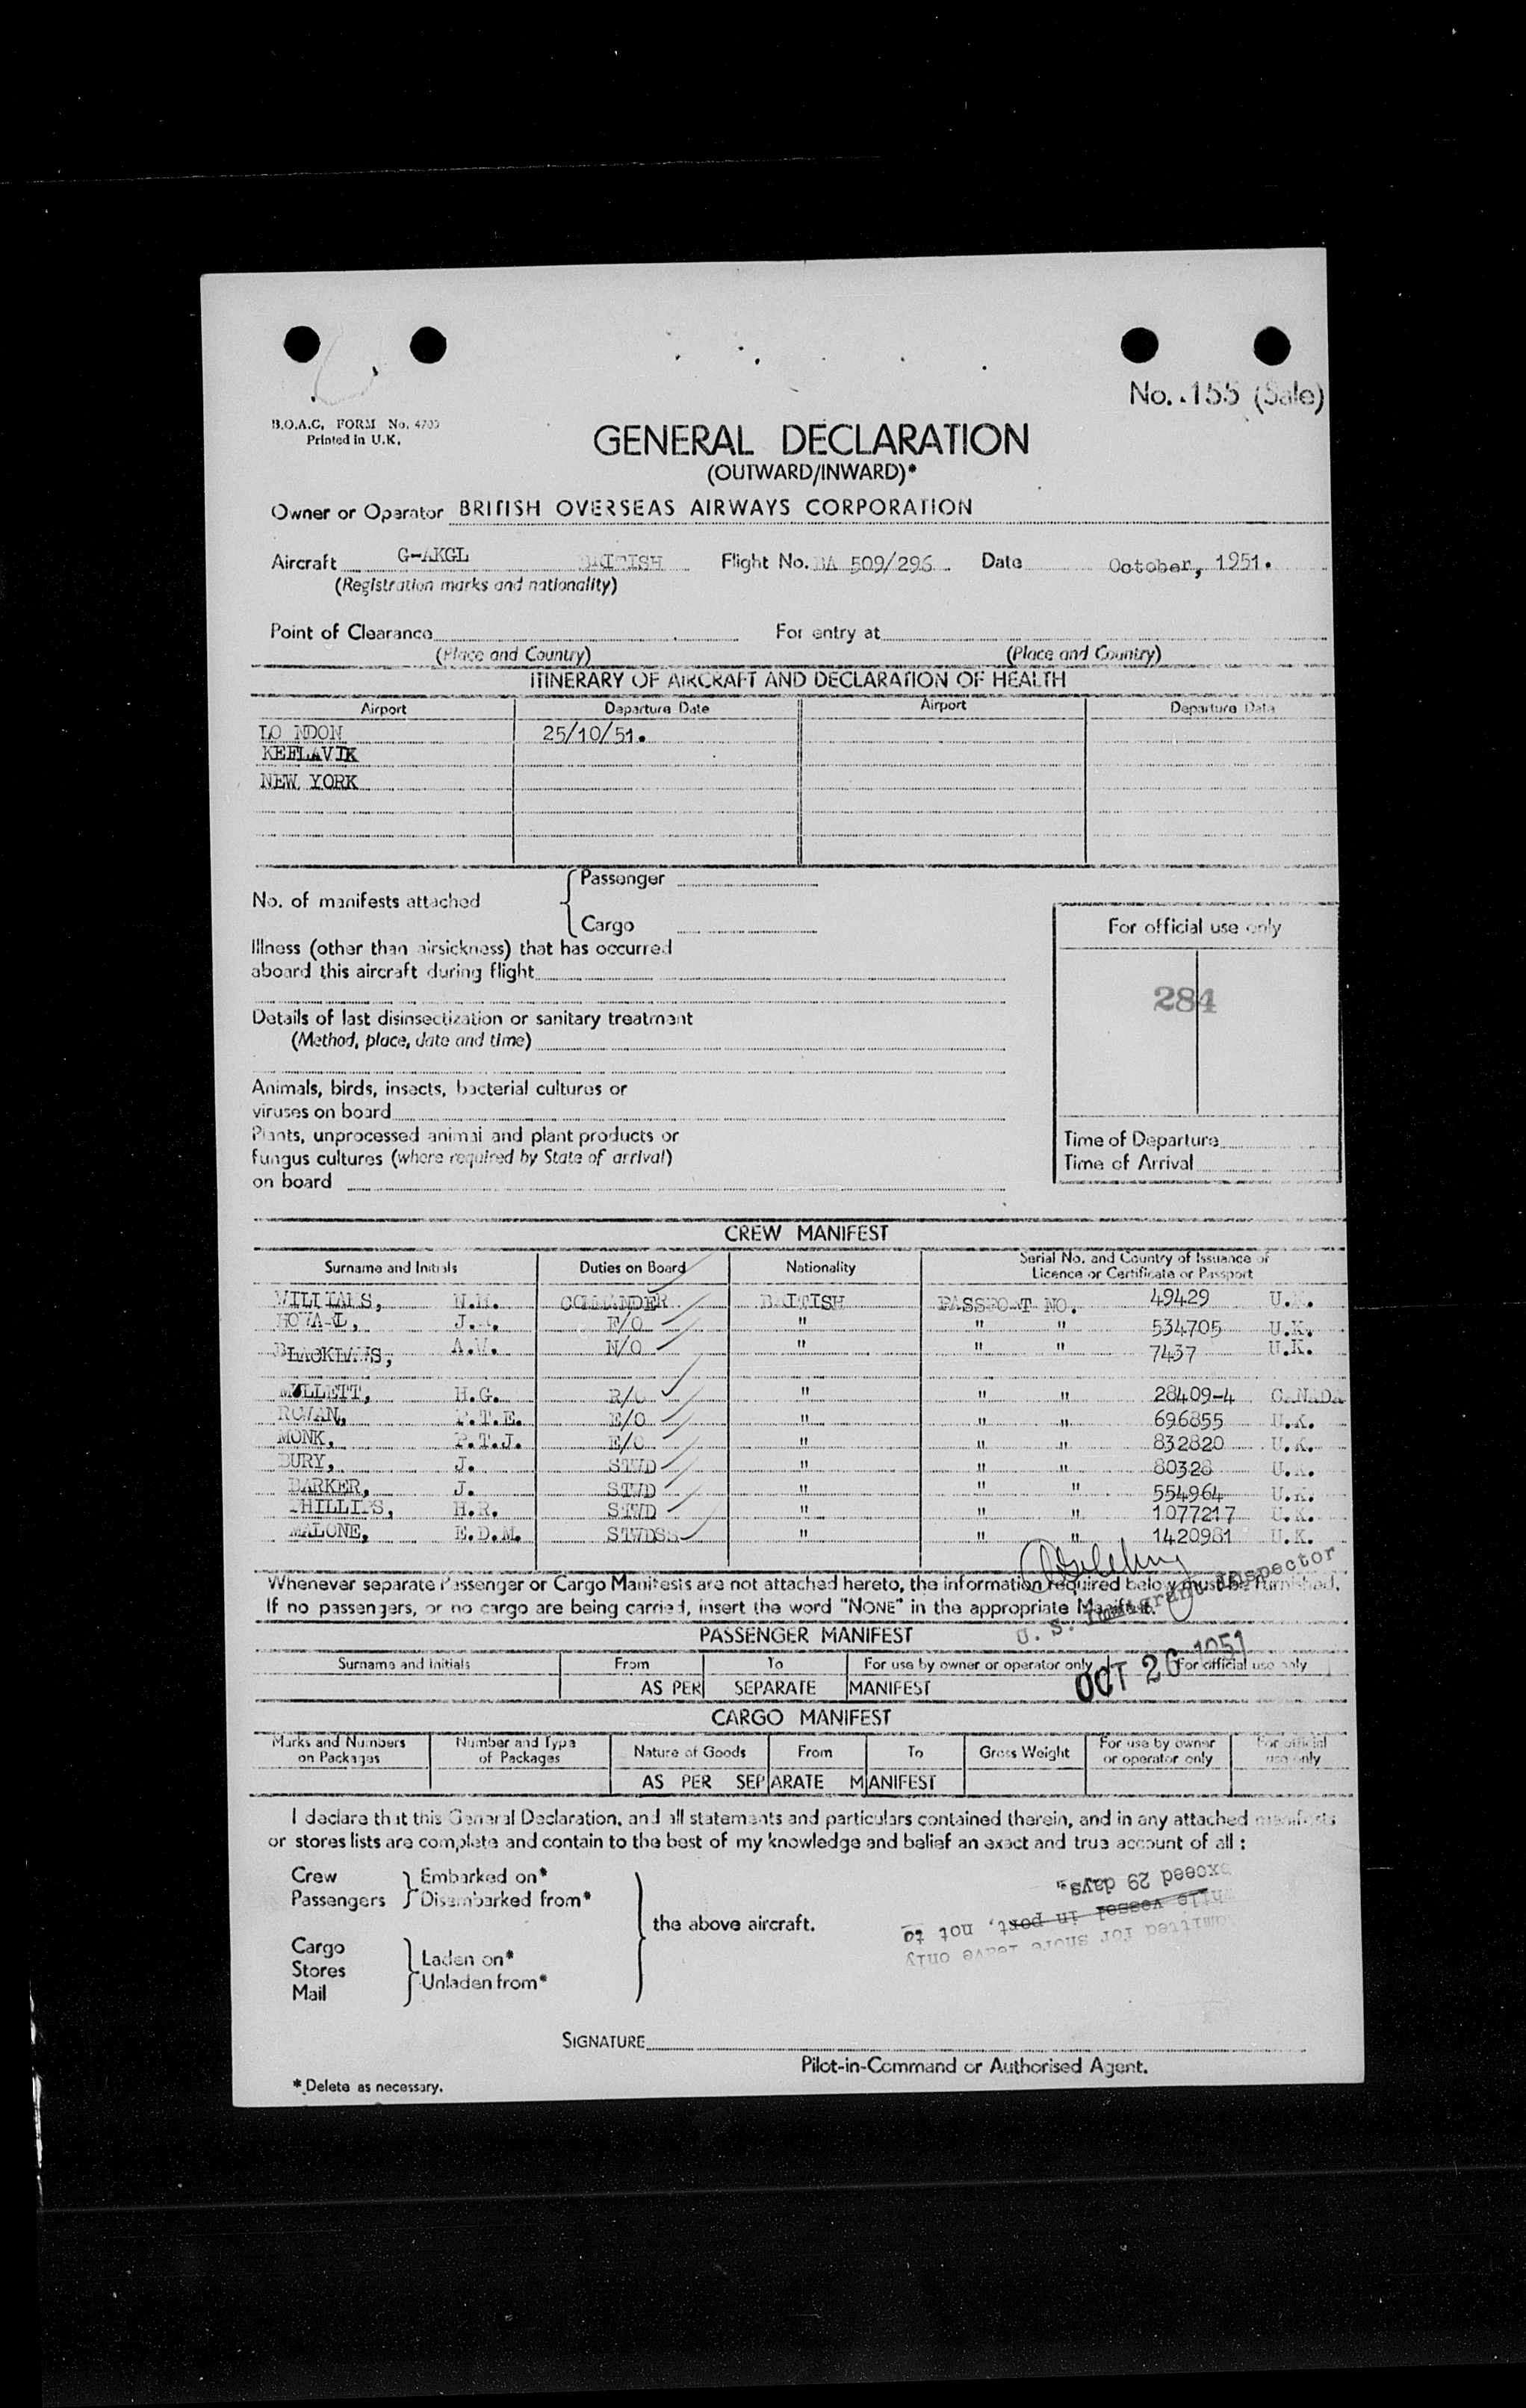 No. 155 (Sale)
B.O.A.C. FORM No. 4703
Printed in U.K.
GENERAL DECLARATION
(OUTWARD/INWARD)*
Owner or Operator BRITISH OVERSEAS AIRWAYS CORPORATION
Aircraft G-AKGL BRITISH Flight No. BA 509/296 Date October, 1951.
(Registration marks and nationality)
Point of Clearance For entry at
(Place and Country) (Place and Country)
ITINERARY OF AIRCRAFT AND DECLARATION OF HEALTH
Airport Departure Date Airport Departure Date
LO NDON 25/10/51.
KEFLAVIK
NEW YORK
No. of manifests attached { Passenger
Cargo
For official use only
284
Illness (other than airsickness) that has occurred
aboard this aircraft during flight
Details of last disinsectization or sanitary treatment
(Method, place, date and time)
Animals, birds, insects, bacterial cultures or
viruses on board
Plants, unprocessed animal and plant products or
fungus cultures (where required by State of arrival)
on board
Time of Departure
Time of Arrival
CREW MANIFEST
Surname and Initials Duties on Board Nationality Serial No. and Country of Issuance of
Licence or Certificate or Passport
WILLIAMS, COMMANDER BRITISH PASSPORT NO. 49429 U.K.
HOWARD, F/O " " " 534705 U.K.
A.W. N/O " " " 7437 U.K.
MOLLETT, H.G. R/O " " " 28409-4 CANADA
ROWAN, E/O " " " 696855 U.K.
MONK, P.T.J. E/O " " " 832820 U.K.
DURY, J. STWD " " " 80328 U.K.
BARKER, J. STWD " " " 554964 U.K.
PHILLIPS, H.R. STWD " " " 1077217 U.K.
MALONE, E.D.M. STWDSS " " " 1420981 U.K.
Whenever separate Passenger or Cargo Manifests are not attached hereto, the information required below must be furnished.
If no passengers, or no cargo are being carried, insert the word "NONE" in the appropriate Manifest.
U. S. Immigrant Inspector
PASSENGER MANIFEST
OCT 26 1951
Surname and Initials From To For use by owner or operator only For official use only
AS PER SEPARATE MANIFEST
CARGO MANIFEST
Marks and Numbers on Packages Number and Type of Packages Nature of Goods From To Gross Weight For use by owner or operator only For official use only
AS PER SEPARATE MANIFEST
I declare that this General Declaration, and all statements and particulars contained therein, and in any attached manifests
or stores lists are complete and contain to the best of my knowledge and belief an exact and true account of all :
Crew } Embarked on*
Passengers } Disembarked from*
the above aircraft.
Cargo
Stores } Laden on*
Mail } Unladen from*
admitted for shore leave only
while vessel in port, not to
exceed 29 days.
SIGNATURE
Pilot-in-Command or Authorised Agent.
* Delete as necessary.